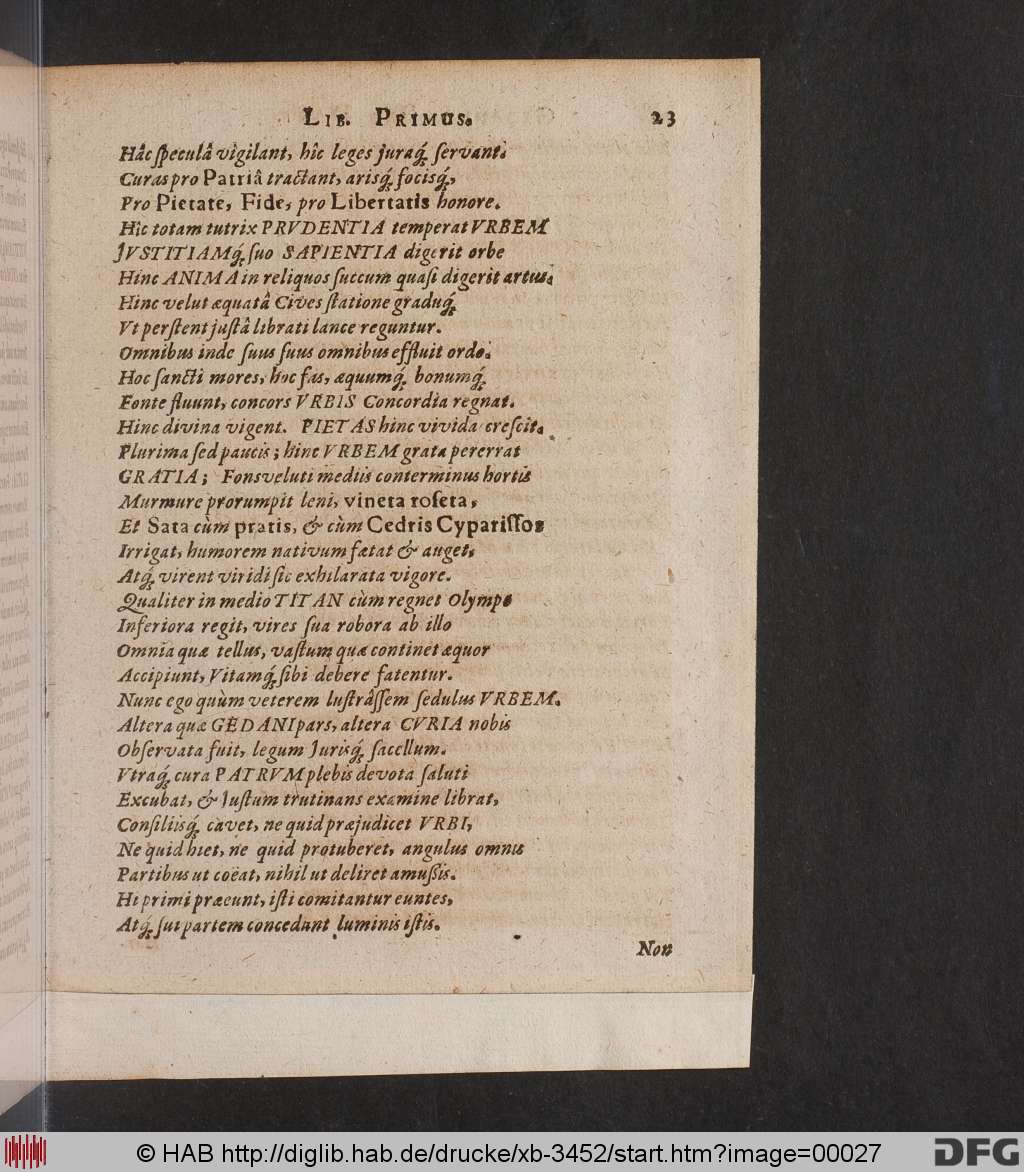 LIB. PRIMUS. 23
Hâc ſpeculâ vigilant, hîc leges juraq́; ſervant.
Curas pro Patriâ tractant, arisq́; focisq́;,
Pro Pietate, Fide, pro Libertatis honore.
Hîc totam tutrix PRVDENTIA temperat VRBEM
JVSTITIAMq́; ſuo SAPIENTIA digerit orbe
Hinc ANIMA in reliquos ſuccum quaſi digerit artus.
Hinc velut æquatâ Cives ſtatione graduq́;
Vt perſtent juſtâ librati lance reguntur.
Omnibus inde ſuus ſuus omnibus effluit ordo.
Hoc ſancti mores, hoc fas, æquumq́; bonumq́;
Fonte fluunt, concors VRBIS Concordia regnat.
Hinc divina vigent. PIETAS hinc vivida creſcit.
Plurima ſed paucis; hinc VRBEM grata pererrat
GRATIA; Fons veluti mediis conterminus hortis
Murmure prorumpit leni, vineta roſeta,
Et Sata cùm pratis, & cùm Cedris Cypariſſos
Irrigat, humorem nativum fœtat & auget,
Atq́; virent viridi ſic exhilarata vigore.
Qualiter in medio TITAN cùm regnet Olympo
Inferiora regit, vires ſua robora ab illo
Omnia quæ tellus, vaſtum quæ continet æquor
Accipiunt, Vitamq́; ſibi debere fatentur.
Nunc ego quùm veterem luſtrâſſem ſedulus VRBEM.
Altera quæ GEDANI pars, altera CVRIA nobis
Obſervata fuit, legum Jurisq́; ſacellum.
Vtraq́; cura PATRVM plebis devota ſaluti
Excubat, & Juſtum trutinans examine librat,
Conſiliisq́; cavet, ne quid præjudicet VRBI,
Ne quid hiet, ne quid protuberet, angulus omnis
Partibus ut coëat, nihil ut deliret amuſſis.
Hi primi præeunt, iſti comitantur euntes,
Atq́; ſui partem concedunt luminis iſtis.
Non
© HAB http://diglib.hab.de/drucke/xb-3452/start.htm?image=00027
DFG